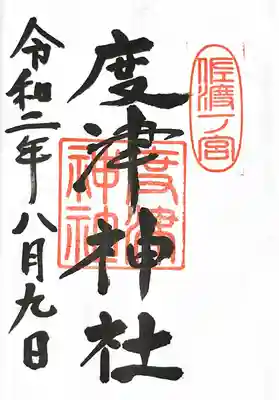 佐渡一ノ宮
度津神社
度津神社
令和二年八月九日